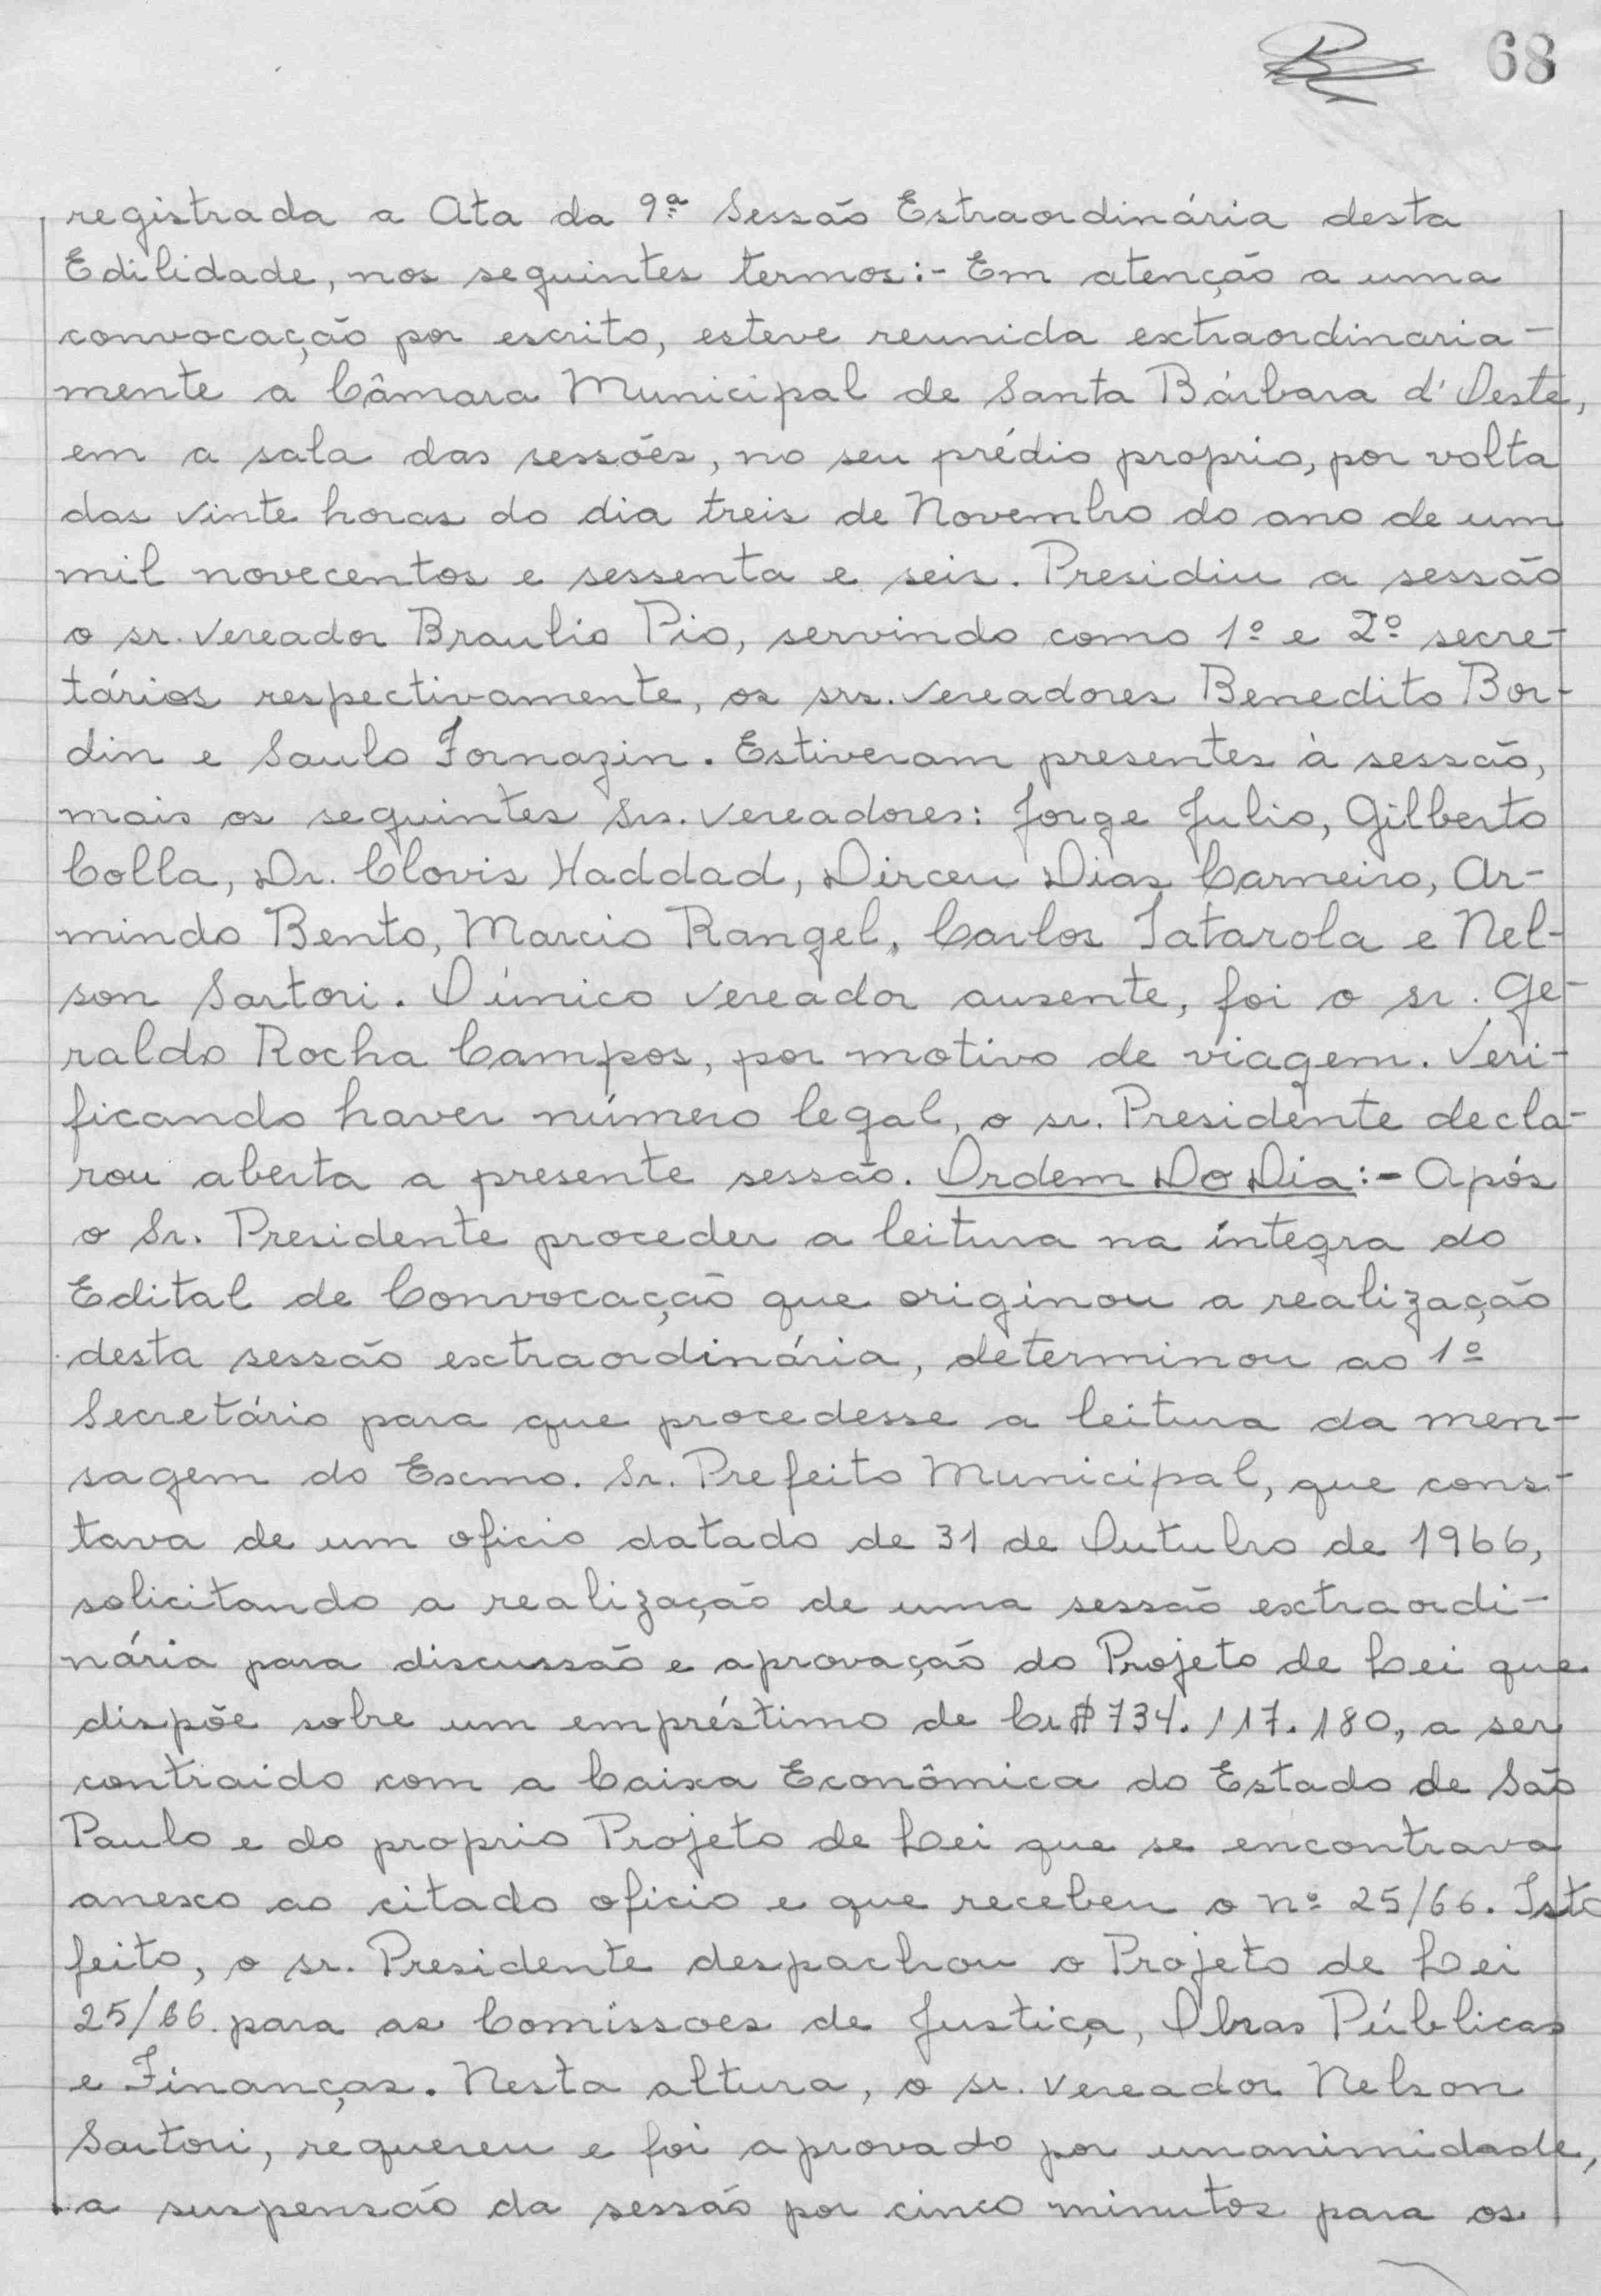 68
registrada a Ata da 9ª Sessão Estraordinária desta
Edilidade, nos seguintes termos:- Em atenção a uma
convocação por escrito, esteve reunida extraordinaria-
mente a Câmara Municipal de Santa Bárbara d'Oeste,
em a sala das sessões, no seu prédio proprio, por volta
das vinte horas do dia treis de Novembro do ano de um
mil novecentos e sessenta e seis. Presidiu a sessão
o sr. vereador Braulio Pio, servindo como 1º e 2º secre-
tários respectivamente, os srs. vereadores Benedito Bor-
din e Saulo Fornazin. Estiveram presentes à sessão,
mais os seguintes Srs. vereadores: Jorge Julio, Gilberto
Colla, Dr. Clovis Haddad, Dirceu Dias Carneiro, Ar-
mindo Bento, Marcio Rangel, Carlos Tatarola e Nel-
son Sartori. O único vereador ausente, foi o sr. Ge-
raldo Rocha Campos, por motivo de viagem. Veri-
ficando haver número legal, o sr. Presidente decla-
rou aberta a presente sessão. Ordem Do Dia:- Após
o Sr. Presidente proceder a leitura na íntegra do
Edital de Convocação que originou a realização
desta sessão extraordinária, determinou ao 1º
Secretário para que procedesse a leitura da men-
sagem do Exmo. Sr. Prefeito Municipal, que cons-
tava de um oficio datado de 31 de Outubro de 1966,
solicitando a realização de uma sessão extraordi-
nária para discussão e aprovação do Projeto de Lei que
dispõe sobre um empréstimo de Cr$ 734.117.180, a ser
contraido com a Caixa Econômica do Estado de São
Paulo e do proprio Projeto de Lei que se encontrava
anexo ao citado oficio e que recebeu o nº 25/66. Isto
feito, o sr. Presidente despachou o Projeto de Lei
25/66 para as Comissoes de Justiça, Obras Públicas
e Finanças. Nesta altura, o sr. vereador Nelson
Sartori, requereu e foi aprovado por unanimidade,
a suspensão da sessão por cinco minutos para os